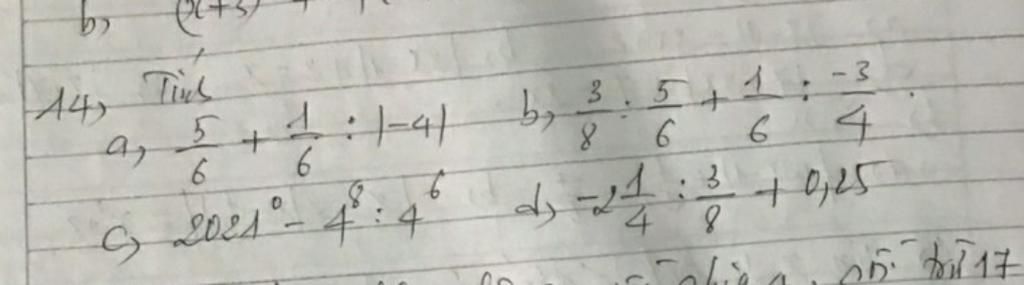 b, (x+3)
14, Tính
a, 5/6 + 1/6 : |-4| b, 3/8 : 5/6 + 1/6 : -3/4 .
c, 2021⁰ - 4⁸ : 4⁶ d, -2 1/4 : 3/8 + 0,25
trừ 17